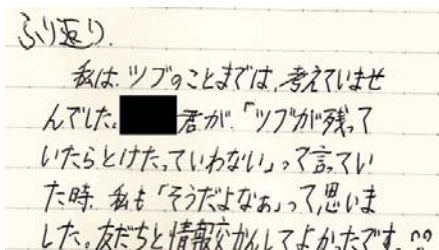 ふり返り.
私は、ツブのことまでは、考えていませ
んでした。君が、「ツブが残って
いたらとけた、っていわない」って言ってい
た時、私も「そうだよなぁ」って、思いま
した。友だちと情報交かんしてよかったです。